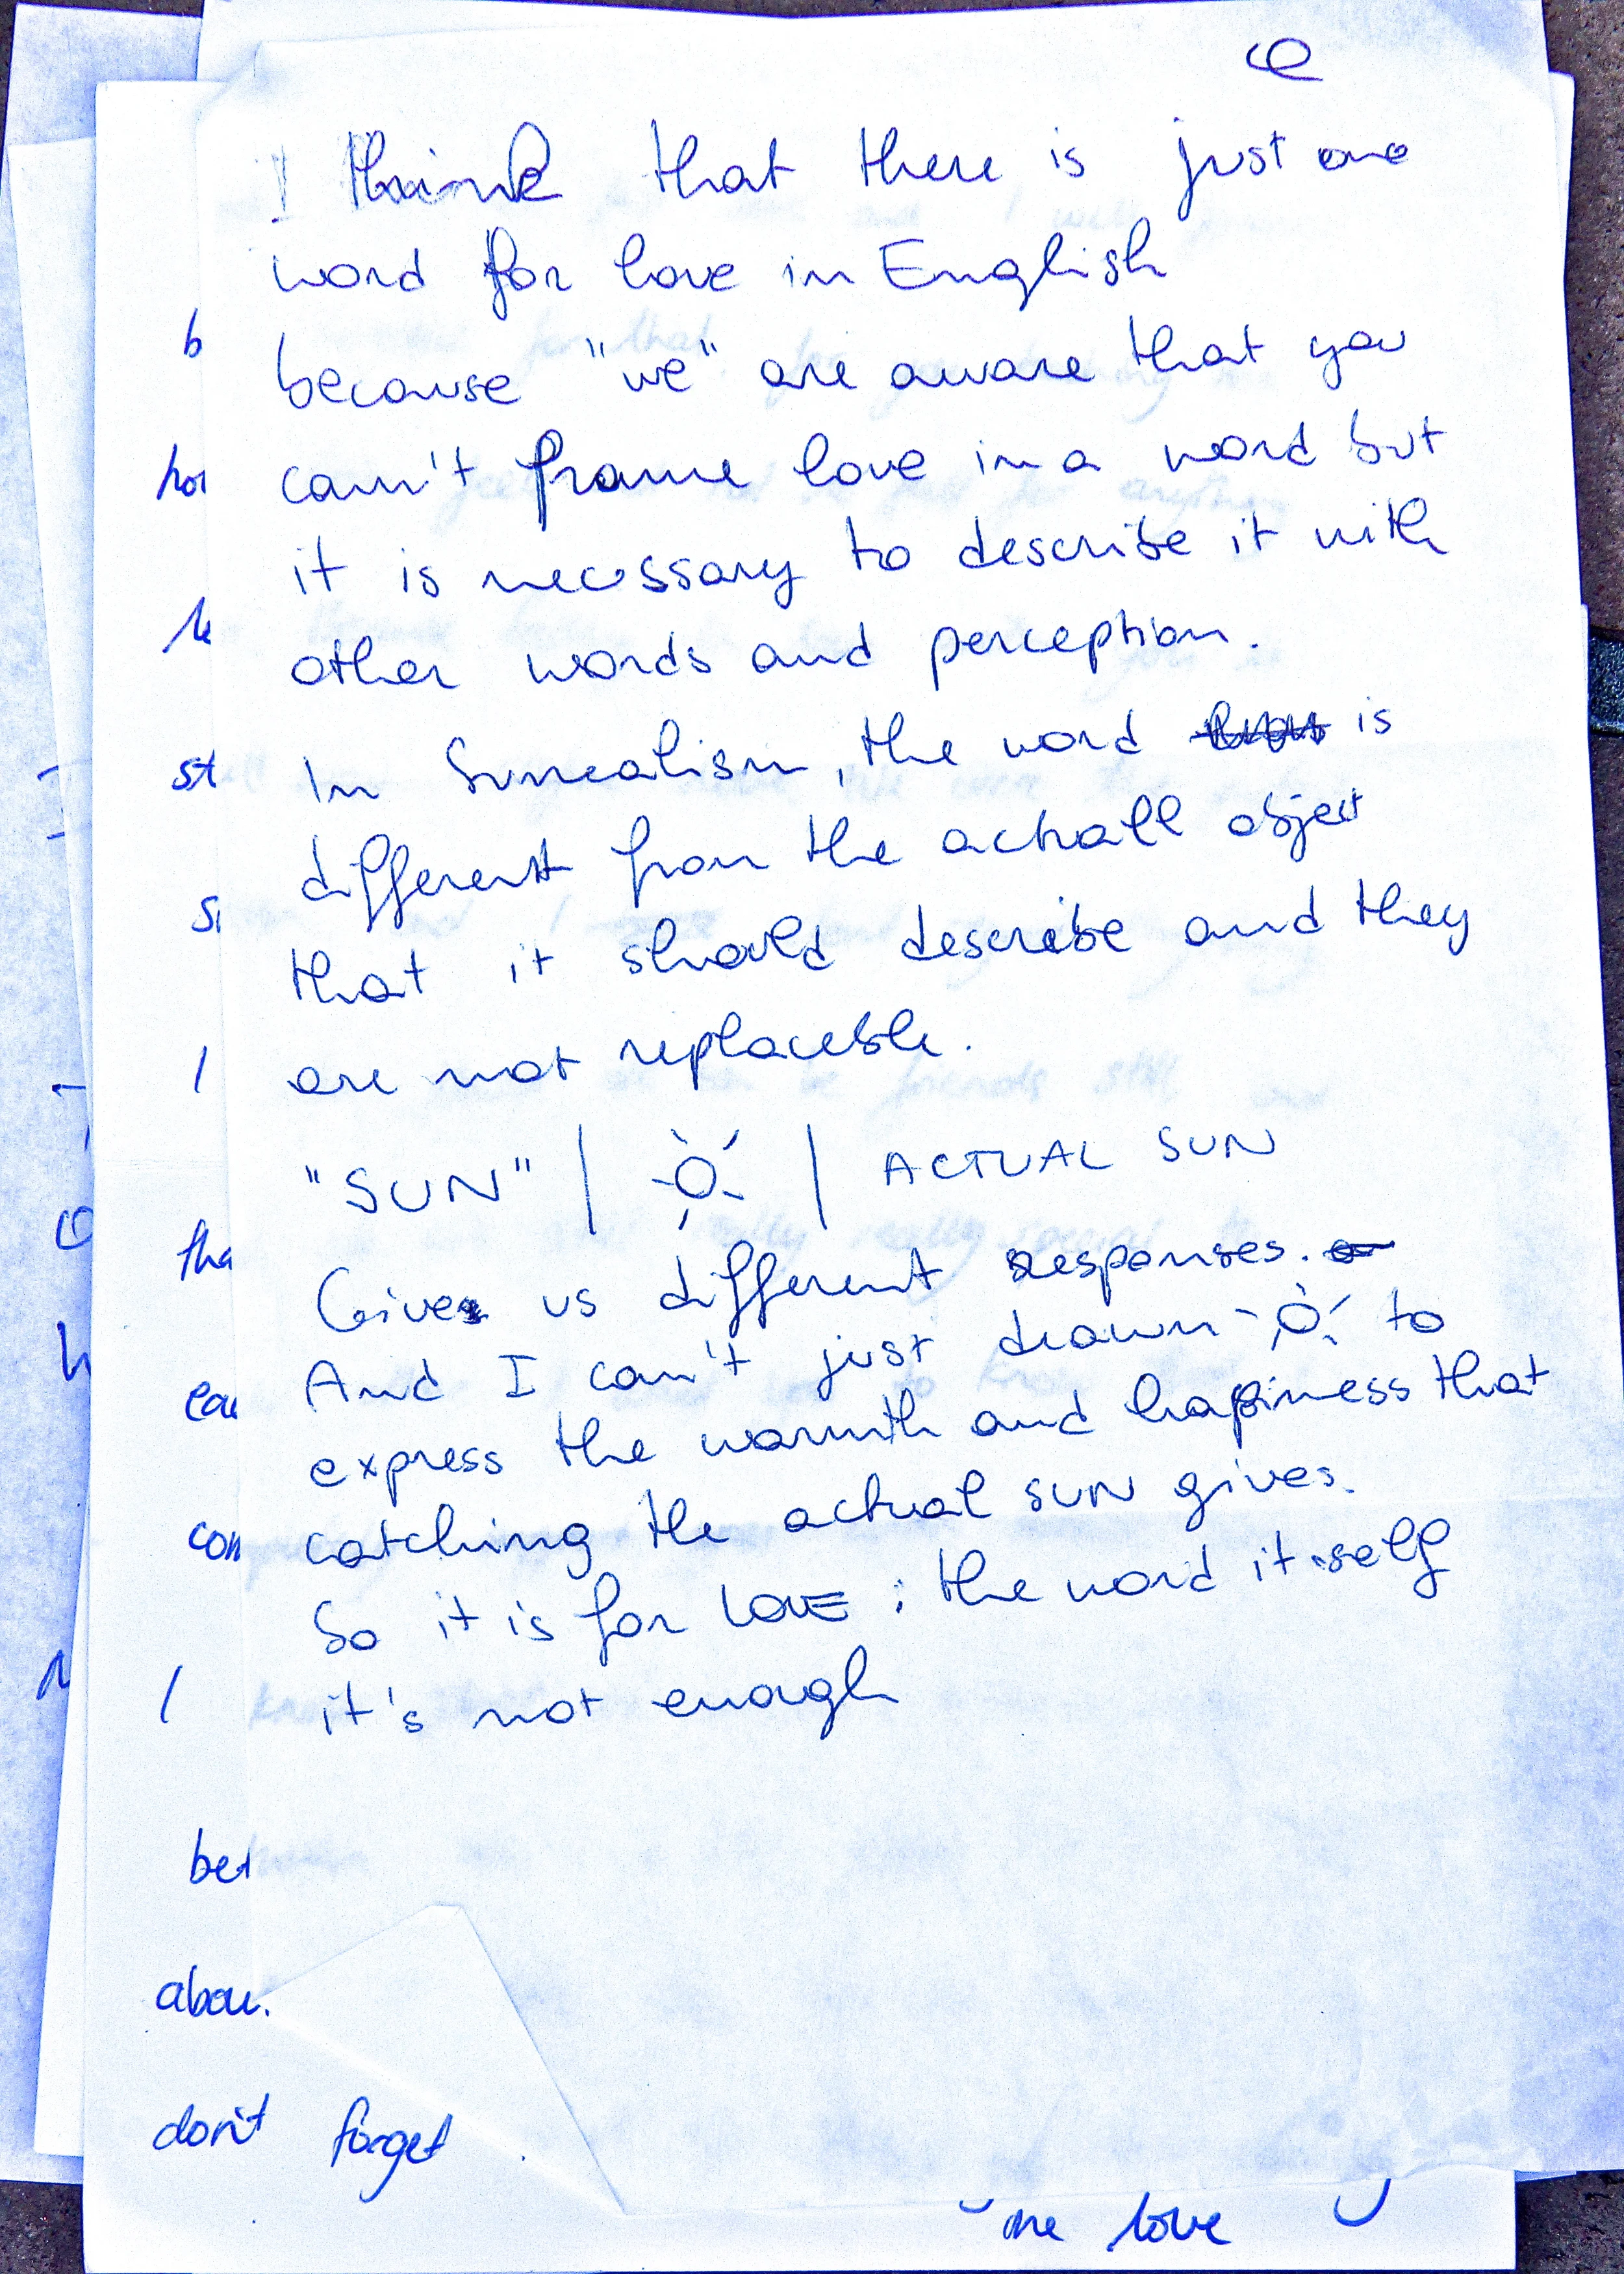 I think that there is just one
word for love in English
because "we" are aware that you
can't frame love in a word but
it is necessary to describe it with
other words and perception.
In Surrealism, the word is
different from the actuall object
that it should describe and they
are not replaceble.
"SUN" | | ACTUAL SUN
Gives us different responses.
And I can't just drawn to
express the warmth and happiness that
catching the actual SUN gives.
So it is for LOVE : the word it self
it's not enough
don't forget
love